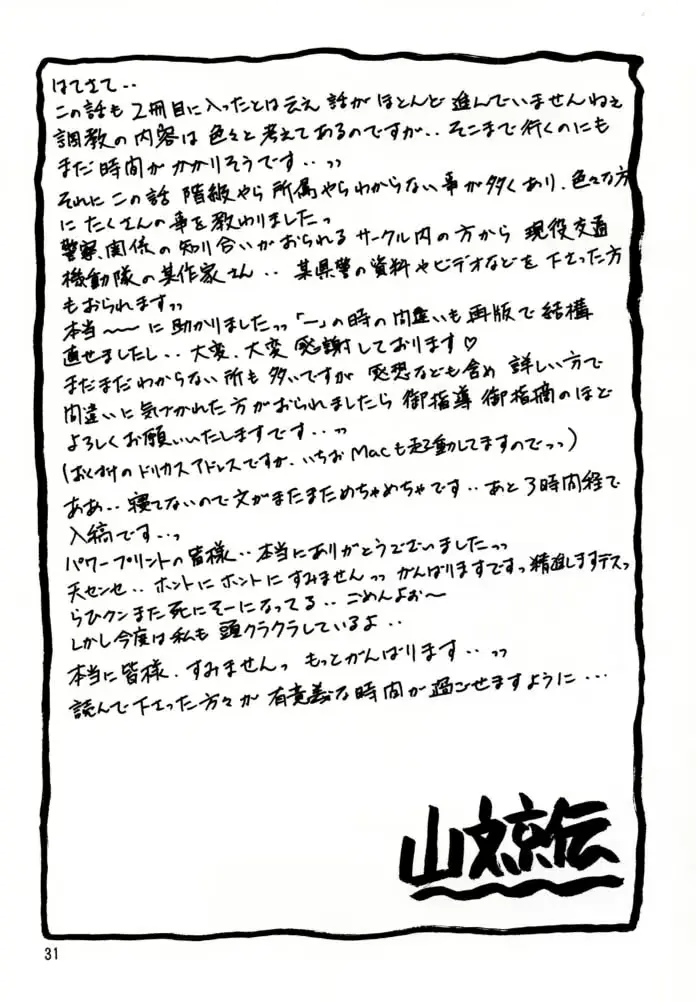 はてさて‥
この話も2冊目に入ったとは云え 話が ほとんど 進んでいませんねぇ
調教の内容は 色々と考えてあるのですが‥そこまで行くのにも
まだ時間が かかりそうです‥ッッ
それに この話 階級やら 所属やらわからない事が多くあり、色々な方
に たくさんの事を教わりましたっ
警察関係の知り合いがおられるサークル内の方から 現役交通
機動隊の某作家さん‥ 某県警の資料やビデオなどを下さった方
もおられますッッ
本当〜〜に助かりましたッッ「一」の時の間違いも再版で結構
直せましたし‥大変、大変 感謝しております♡
まだまだわからない所も多いですが 感想なども含め 詳しい方で
間違いに気づかれた方がおられましたら 御指導 御指摘のほど
よろしくお願いいたしますです‥ッッ
(おくずけのドリカスアドレスですが、いちおMacも起動してますのでっっ)
ああ‥寝てないので文がまたまためちゃめちゃです‥あと3時間経で
入稿です‥っ
パワープリントの皆様‥本当にありがとうございましたッッ
天センセ‥ホントにホントにすみませんッッ がんばりますですっ精進しますデスっ
らひクンまた死にそーになってる‥ごめんよぉ〜
しかし今度は私も 頭クラクラしているよ‥
本当に皆様、すみませんっ もっとがんばります‥ッッ
読んで下さった方々が 有意義な時間が過ごせますように…
山文京伝
31